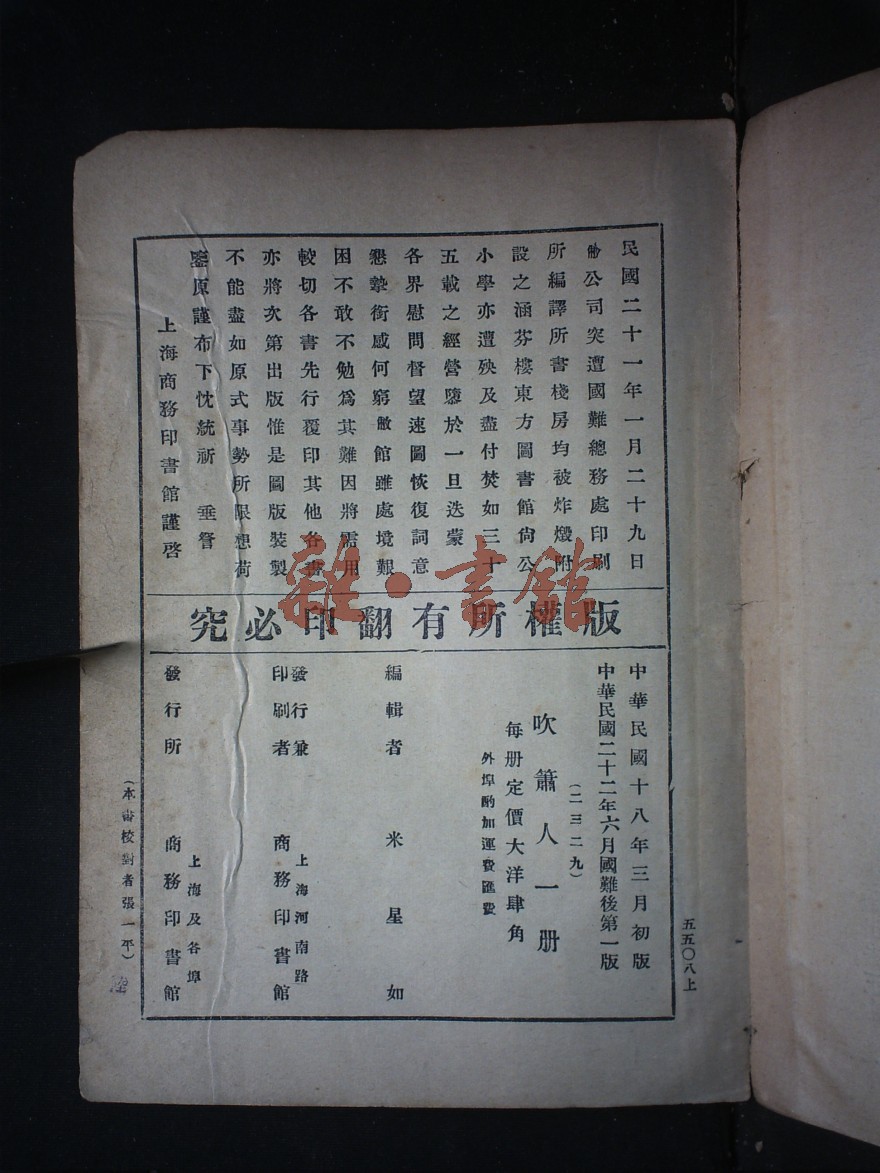 民國二十一年一月二十九日
敝公司突遭國難總務處印刷
所編譯所書棧房均被炸燬附
設之涵芬樓東方圖書館尙公
小學亦遭殃及盡付焚如三十
五載之經營隳於一旦迭蒙
各界慰問督望速圖恢復詞意
懇摯銜感何窮敝館雖處境艱
困不敢不勉爲其難因將需用
較切各書先行覆印其他各書
亦將次第出版惟是圖版裝製
不能盡如原式事勢所限想荷
鑒原謹布下忱統祈 垂詧
上海商務印書館謹啓
版權所有翻印必究
中華民國十八年三月初版
中華民國二十二年六月國難後第一版
(二三二九)
吹簫人一册
每册定價大洋肆角
外埠酌加運費匯費
編輯者 米星如
發行兼
印刷者
上海河南路
商務印書館
發行所
上海及各埠
商務印書館
五五〇八上
(本書校對者張一平)
雜·書館